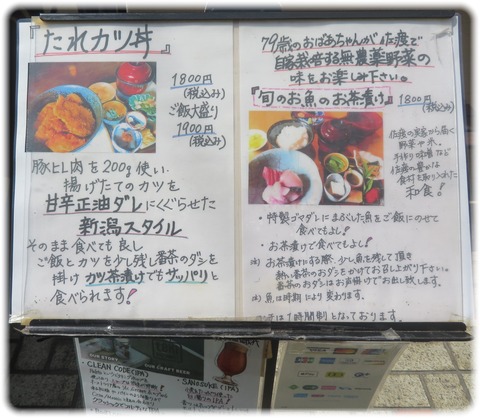 『たれカツ丼』
1800円
(税込み)
ご飯大盛り
1900円
(税込み)
豚ヒレ肉を200g使い
揚げたてのカツを
甘辛正油ダレにくぐらせた
新潟スタイル
そのまま食べても良し
ご飯とカツを少し残し番茶のダシを
掛けカツ茶漬けでもサッパリと
食べられます!
79歳のおばあちゃんが佐渡で
自家栽培する無農薬野菜の
味をお楽しみ下さい。
『旬のお魚のお茶漬け』
1800円
(税込み)
佐渡の実家から届く
野菜や米、
手作り味噌など
佐渡の豊かな
食材を取り入れた
和食!
・特製ゴマダレにまぶした魚をご飯にのせて
食べてもよし!
・お茶漬けで食べてもよし!
※) お茶漬けにする際 少し魚を残して頂き
熱い番茶のおダシをかけてお召し上がり下さい。
番茶のおダシはお声掛けでお出し致します。
※) 魚は時期により変わります。
ランチは1時間制となっております。
OUR STORY
OUR CRAFT BEER
CLEAN CODE(IPA)
SANOSUKE (IPA)
VISA